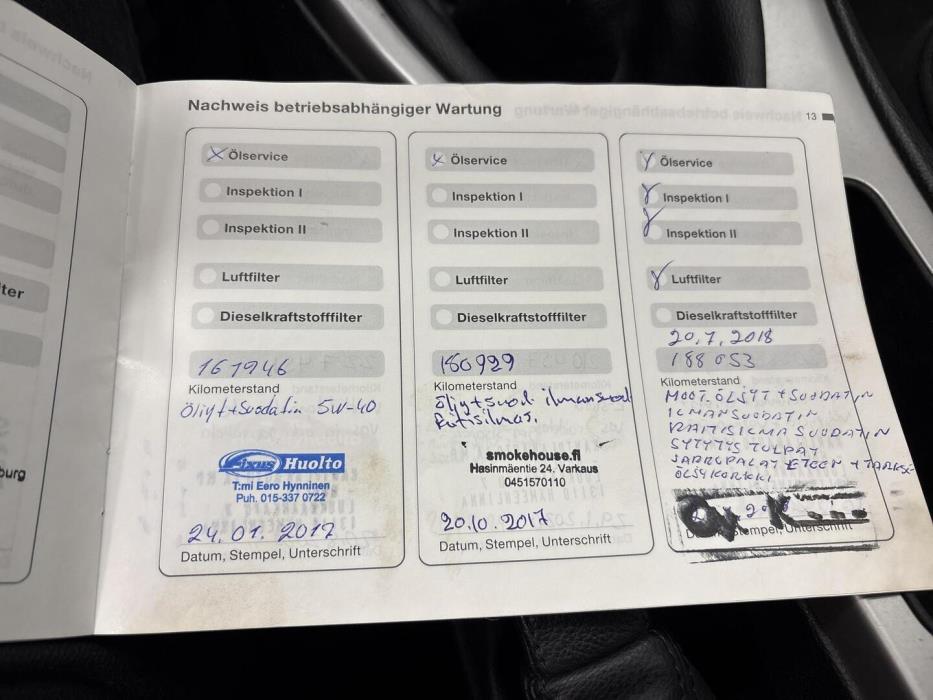 Nachweis betriebsabhängiger Wartung
13
Ölservice
Inspektion I
Inspektion II
Luftfilter
Dieselkraftstofffilter
161946
Kilometerstand
Öliyt+Suodatin 5W-40
Fixus Huolto
T:mi Eero Hynninen
Puh. 015-337 0722
24.01.2017
Datum, Stempel, Unterschrift
Ölservice
Inspektion I
Inspektion II
Luftfilter
Dieselkraftstofffilter
180929
Kilometerstand
öljyt+suod. ilmansuod
smokehouse.fi
Hasinmäentie 24, Varkaus
0451570110
20.10.2017
Datum, Stempel, Unterschrift
Ölservice
Inspektion I
Inspektion II
Luftfilter
Dieselkraftstofffilter
20.7.2018
188053
Kilometerstand
MOOT.ÖLJYT + SUODATIN
ILMANSUODATIN
RAITISILMA SUODATIN
SYTYTYS TULPAT
JARRUPALAT ETEEN + TAAKSE
ÖLJYKORKKI
Oy
Unterschrift
ter
burg